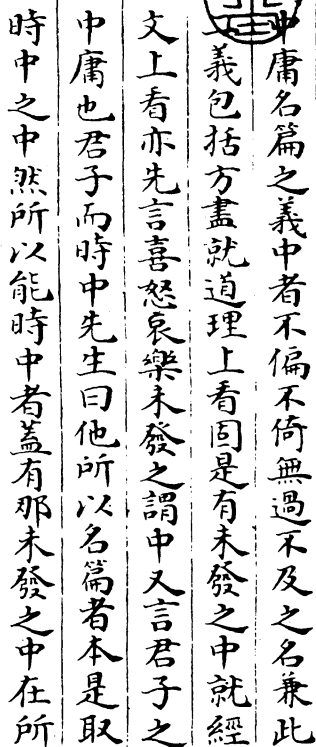 中庸名篇之義中者不偏不倚無過不及之名兼此
二義包括方盡就道理上看固是有未發之中就經
文上看亦先言喜怒哀樂未發之謂中又言君子之
中庸也君子而時中先生曰他所以名篇者本是取
時中之中然所以能時中者蓋有那未發之中在所